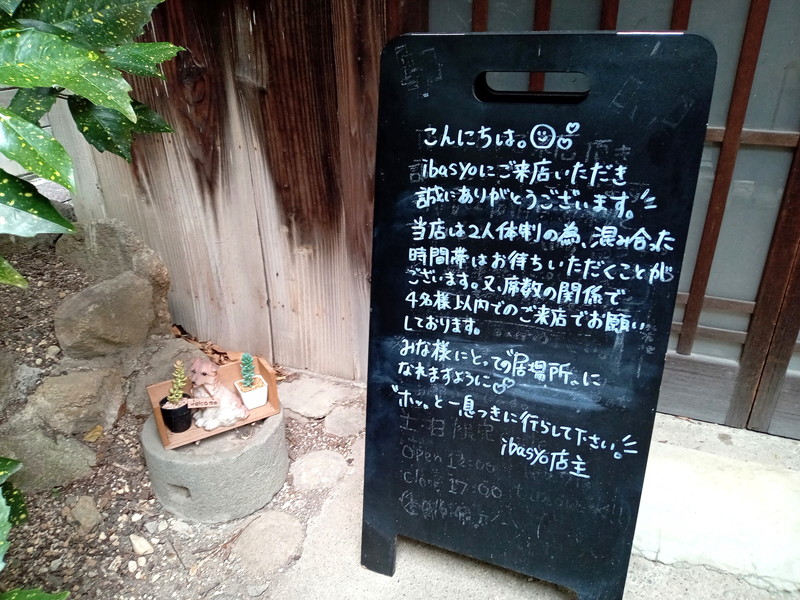 こんにちは。
ibasyoにご来店いただき
誠にありがとうございます。
当店は2人体制の為、混み合った
時間帯はお待ちいただくことが
ございます。又、席数の関係で
4名様以内でのご来店でお願い
しております。
みな様にとっての"居場所"に
なれますように
"ホッ"と一息つきに行らして下さい。
ibasyo店主
土・日限定
Open 12:00
close 17:00
welcome